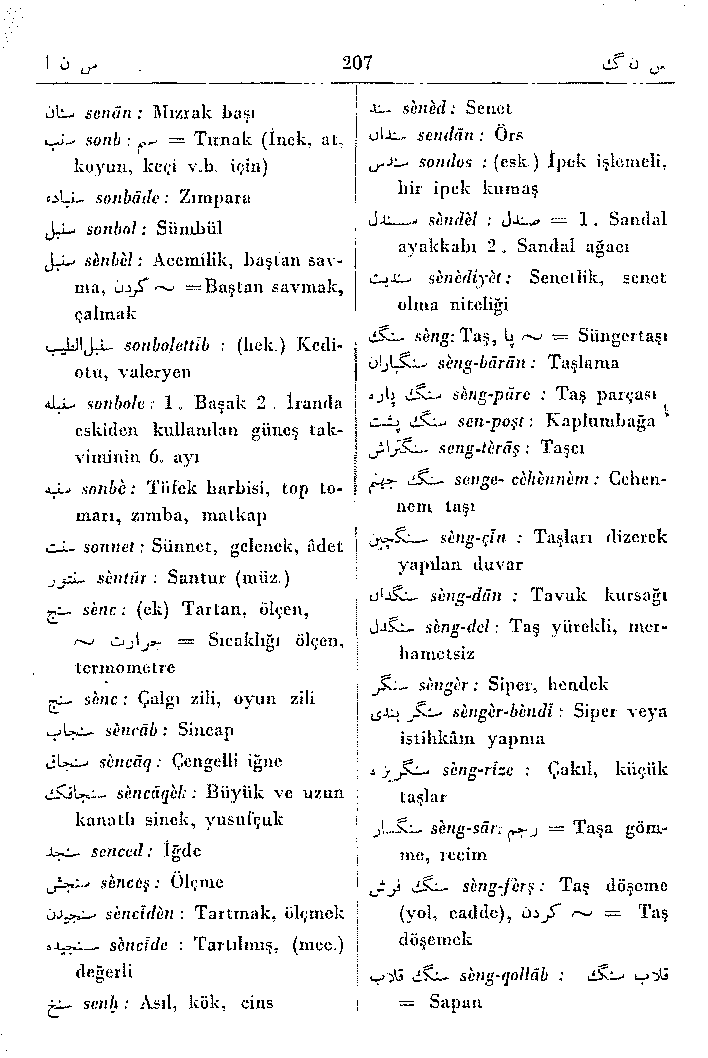 س ن ا
207
س ن گ
سنان senān : Mızrak başı
سنب sonb : سم = Tırnak (İnek, at,
koyun, keçi v.b. için)
سنباده sonbāde : Zımpara
سنبل sonbol : Sümbül
سنبل sènbèl : Acemilik, baştan sav-
ma, کردن ~ =Baştan savmak,
çalmak
سنبل‌الطیب sonbolettib : (hek.) Kedi-
otu, valeryen
سنبله sonbole : 1. Başak 2. İranda
eskiden kullanılan güneş tak-
viminin 6. ayı
سنبه sonbè : Tüfek harbisi, top to-
marı, zımba, matkap
سنت sonnet : Sünnet, gelenek, âdet
سنتور sèntūr : Santur (müz.)
سنج sènc : (ek) Tartan, ölçen,
~ حرارت = Sıcaklığı ölçen,
termometre
سنج sènc : Çalgı zili, oyun zili
سنجاب sèncāb : Sincap
سنجاق sèncāq : Çengelli iğne
سنجاقک sèncāqèk : Büyük ve uzun
kanatlı sinek, yusufçuk
سنجد senced : İğde
سنجش sènceş : Ölçme
سنجیدن sèncīdèn : Tartmak, ölçmek
سنجیده sèncīde : Tartılmış, (mec.)
değerli
سنخ senḫ : Asıl, kök, cins
سند sènèd : Senet
سندان sendān : Örs
سندس sondos : (esk.) İpek işlemeli,
bir ipek kumaş
سندل sèndèl : صندل = 1. Sandal
ayakkabı 2. Sandal ağacı
سندیت sènèdiyèt : Senetlik, senet
olma niteliği
سنگ sèng: Taş, پا ~ = Süngertaşı
سنگباران sèng-bārān : Taşlama
سنگ پاره sèng-pāre : Taş parçası
سنگ پشت sen-poşt : Kaplumbağa
سنگتراش seng-tèrāş : Taşcı
سنگ جهنم senge- cèhènnèm : Cehen-
nem taşı
سنگچین sèng-çīn : Taşları dizerek
yapılan duvar
سنگدان sèng-dān : Tavuk kursağı
سنگدل sèng-del : Taş yürekli, mer-
hametsiz
سنگر sèngèr : Siper, hendek
سنگر بندی sèngèr-bèndī : Siper veya
istihkâm yapma
سنگریزه sèng-rīze : Çakıl, küçük
taşlar
سنگسار sèng-sār: رجم = Taşa göm-
me, recim
سنگ فرش sèng-fèrş : Taş döşeme
(yol, cadde), کردن ~ = Taş
döşemek
سنگ قلاب sèng-qollāb : قلاب سنگ
= Sapan